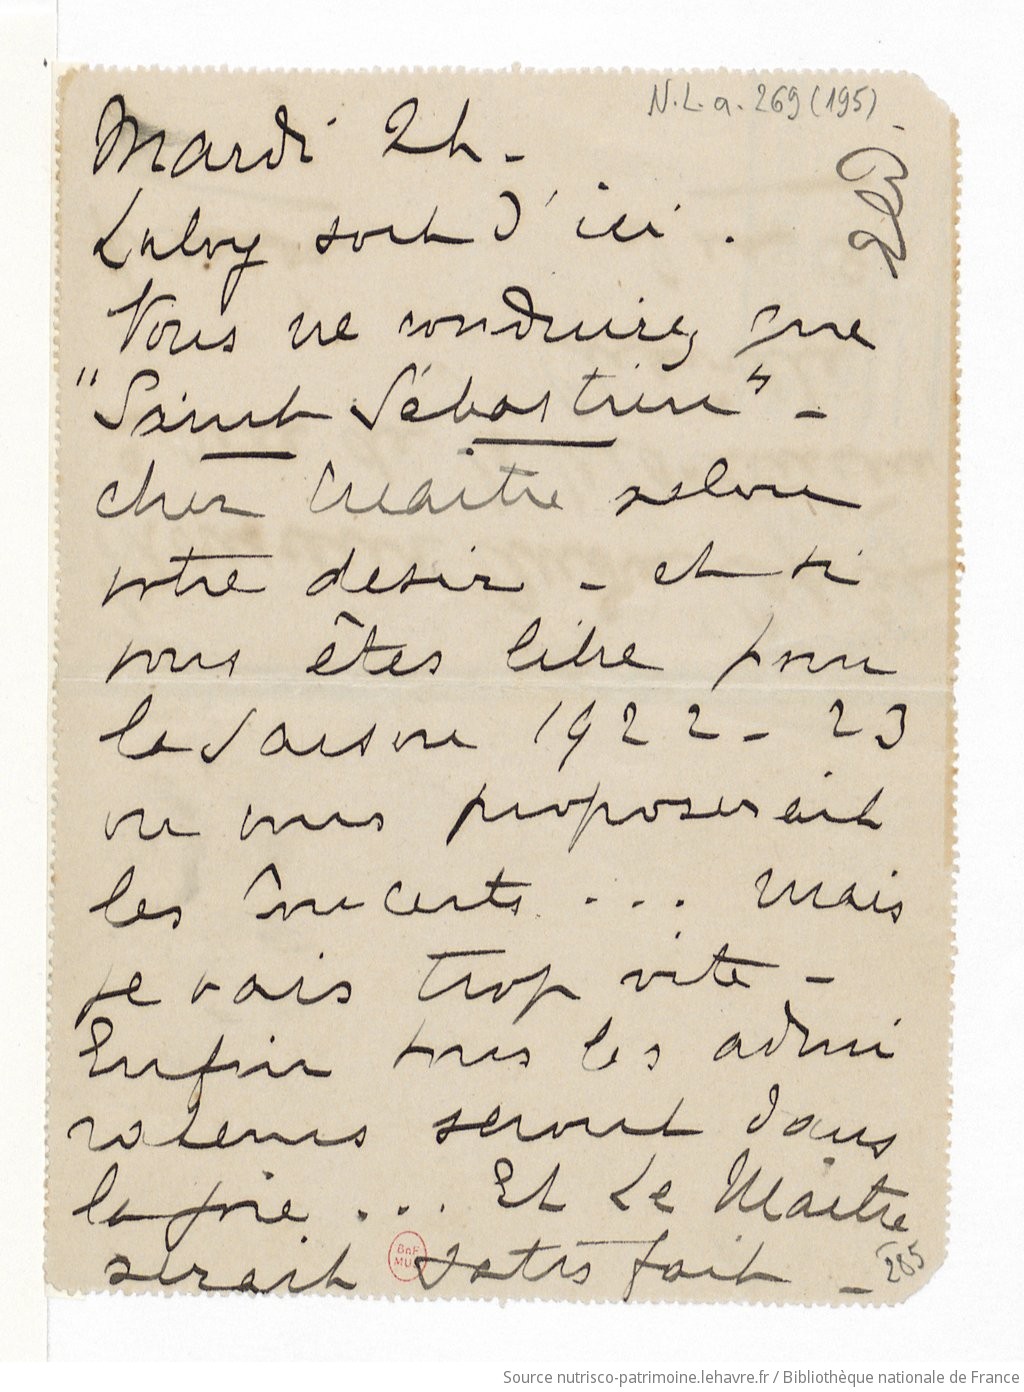 N.L.a. 269 (195)
Mardi 2h -
Laloy sort d'ici .
Vous ne conduirez que
"Saint Sébastien" -
cher Maitre selon
votre desir - et si
vous êtes libre pour
la saison 1922 - 23
on vous proposerait
les Concerts ... Mais
je vais trop vite -
Enfin tous les admi
rateurs seront dans
la joie ... Et Le Maitre
serait satisfait -
BnF
MUS
285
Source nutrisco-patrimoine.lehavre.fr / Bibliothèque nationale de France